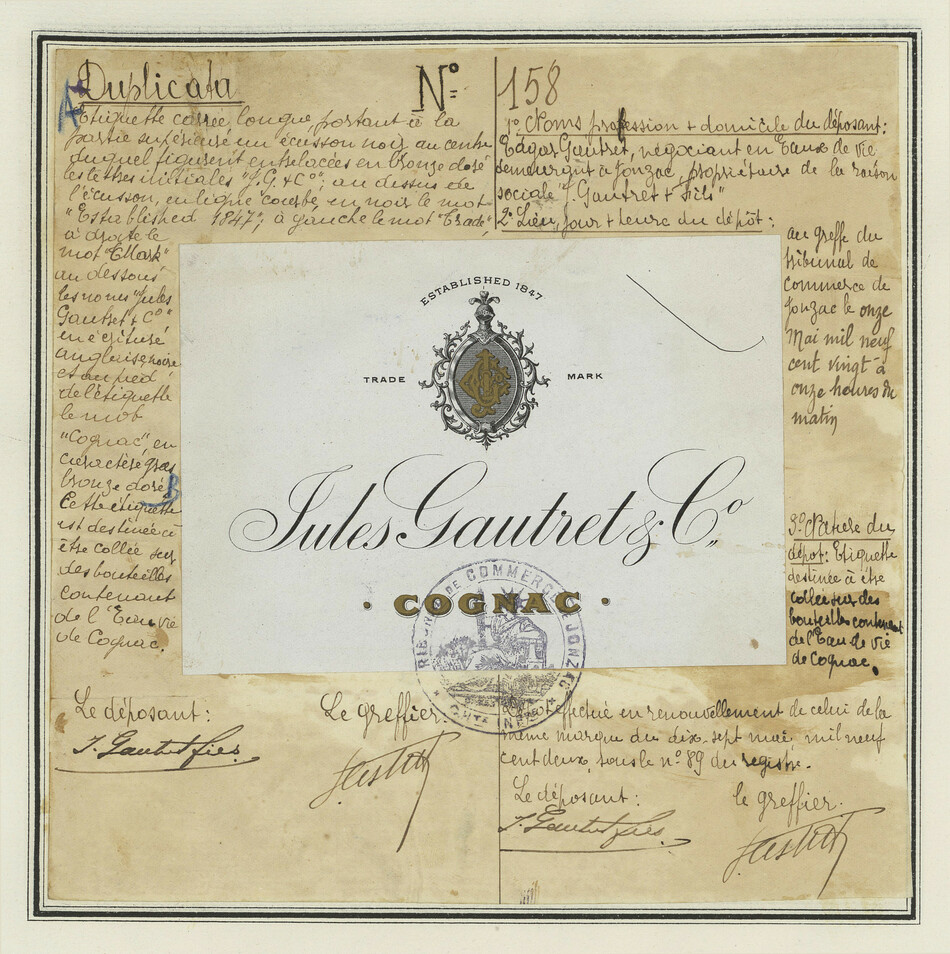 Duplicata
Nº 158
Etiquette carrée longue, portant à la
partie supérieure un écusson noir au centre
duquel figurent entrelacées en bronze doré
les lettres initiales "J.G. & Cº"; au dessus de
l'écusson, en ligne courbe, en noir le mot
"Established 1847"; à gauche le mot "Trade",
à droite le
mot "Mark"
au dessous
les noms "Jules
Gautret & Cº"
en écriture
anglaise noire
et au pied
de l'étiquette
le mot
"Cognac" en
caractère gras
bronze doré.
Cette étiquette
est destinée à
être collée sur
des bouteilles
contenant
de l'Eau de vie
de Cognac.
1º Noms profession & domicile du déposant:
Edgar Gautret, négociant en Eaux de vie
demeurant à Jonzac, propriétaire de la raison
sociale "J. Gautret & Fils"
2º Lieu, jour & heure du dépôt:
au greffe du
tribunal de
commerce de
Jonzac le onze
Mai mil neuf
cent vingt à
onze heures du
matin
3º Nature du
dépôt: Etiquette
destinée à être
collée sur des
bouteilles contenant
de l'Eau de vie
de Cognac.
ESTABLISHED 1847
TRADE MARK
Jules Gautret & Cº
COGNAC
DE COMMERCE DE JONZAC
Le déposant:
J. Gautret fils
Le greffier:
effectué en renouvellement de celui de la
même marque du dix-sept mai, mil neuf
cent deux, sous le nº 89 du registre.
Le déposant:
J. Gautret fils
le greffier.